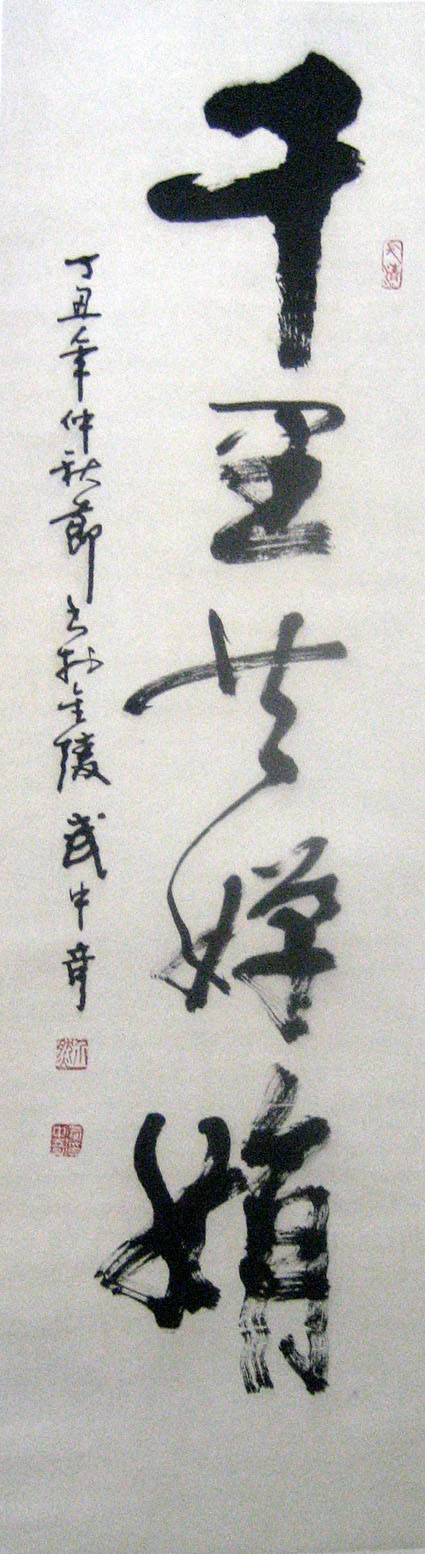 千里共婵娟
丁丑年仲秋節书於金陵 武中奇